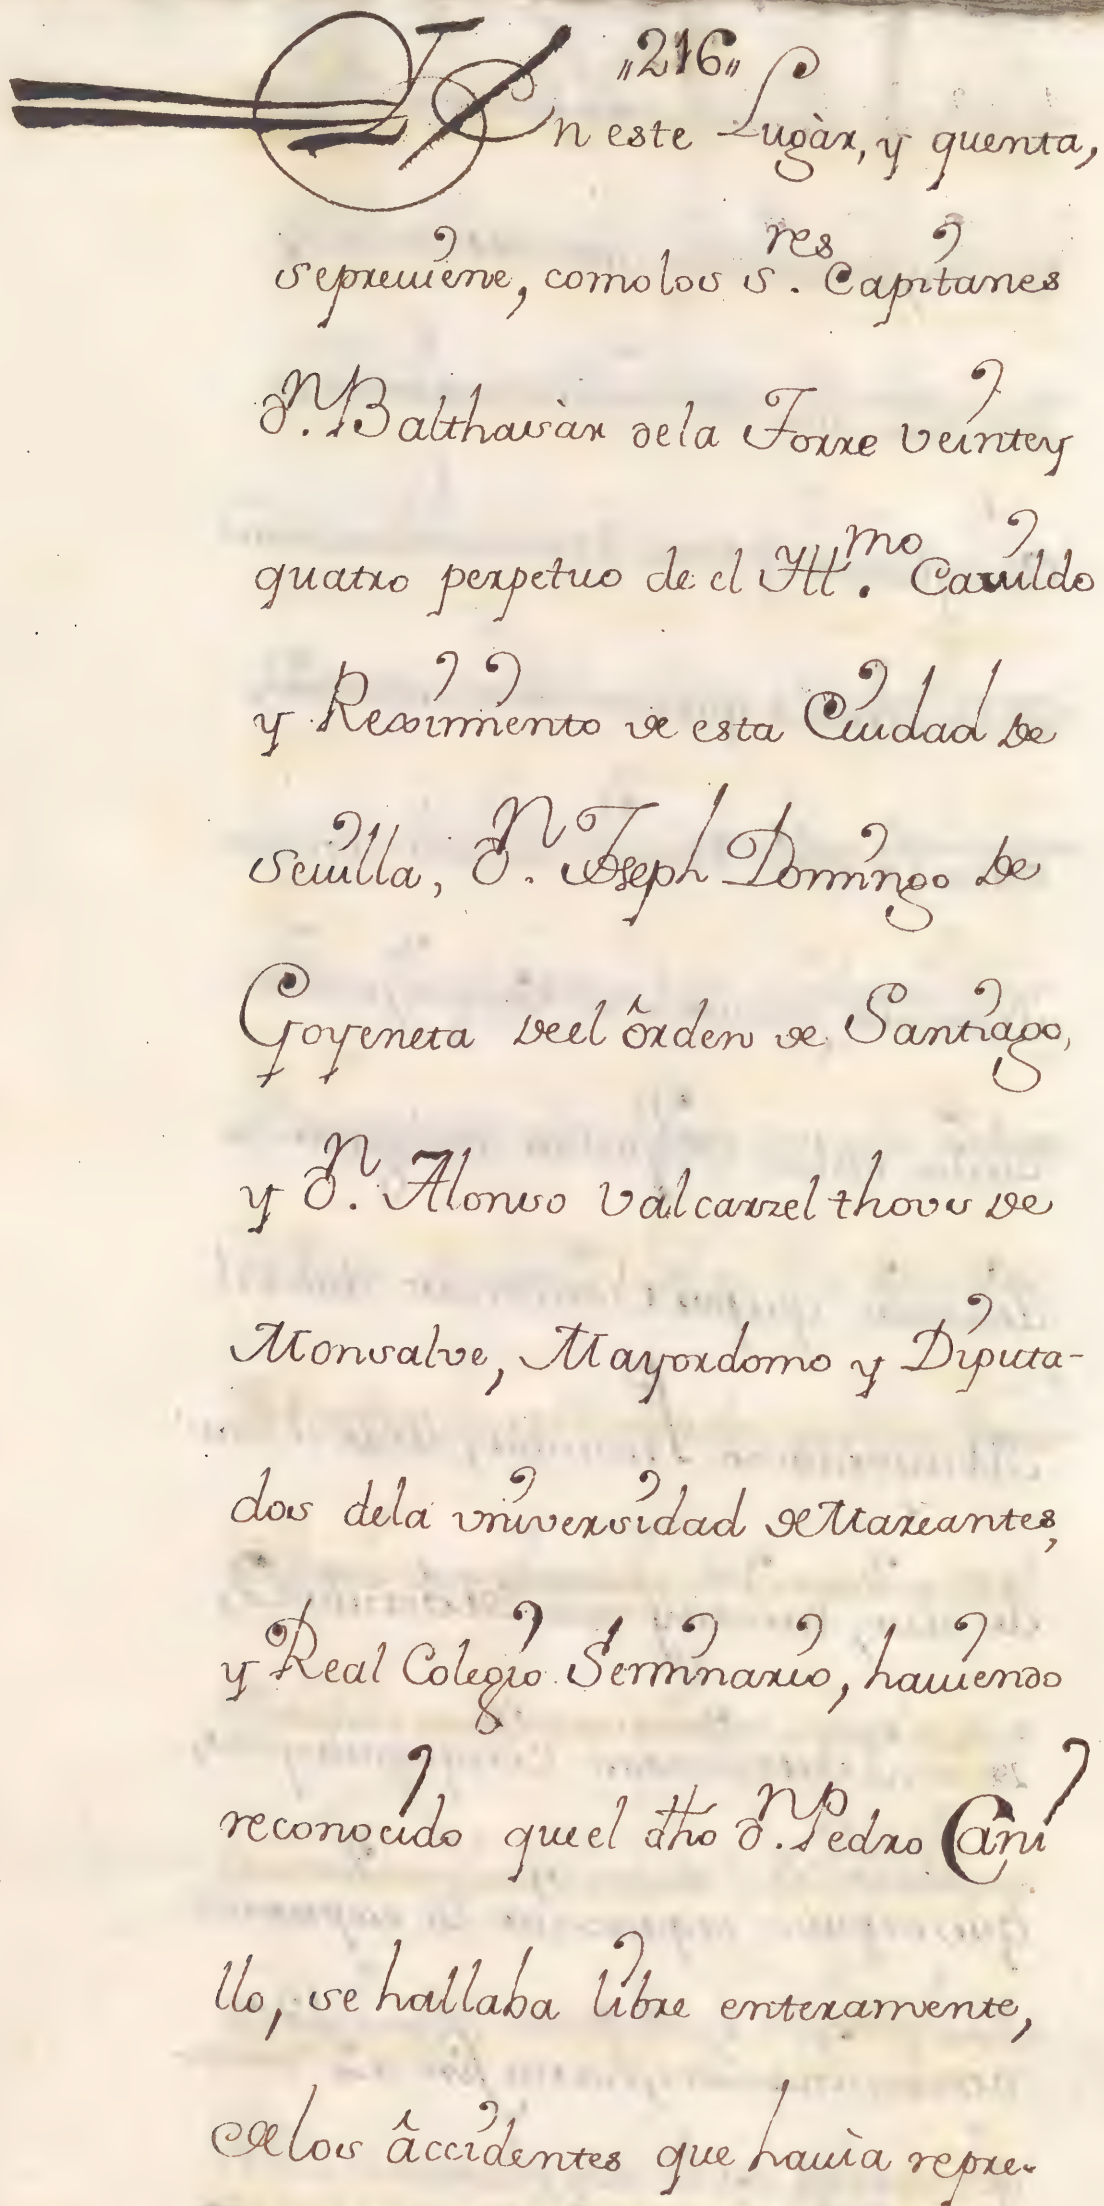 "216"
En este Lugàr, y quenta,
sepreuiene, comolos S.res Capitanes
D.n Balthasàr dela Torre Veintey
quatro perpetuo de el Yll.mo Cauildo
y Reximiento de esta Ciudad de
Seuilla, D.n Joseph Domingo de
Goyeneta deel ôrden de Santiago,
y D.n Alonso Valcarzel thous de
Monsalve, Mayordomo y Diputa-
dos dela vniversidad de Mareantes,
y Real Colegio Seminario, hauiendo
reconocido que el dho D.n Pedro Cani
llo, se hallaba libre enteramente,
de los âccidentes que hauìa repre-